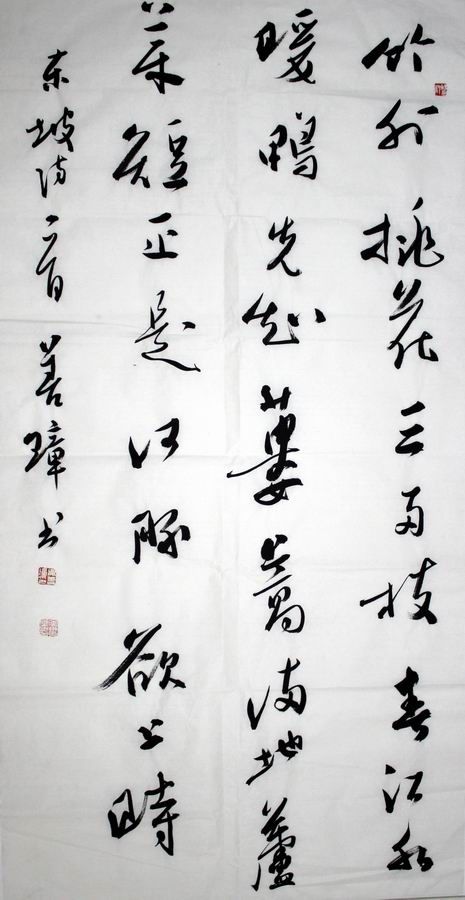 竹外桃花三两枝春江水
暖鴨先知蔞蒿满地蘆
芽短正是河豚欲上時
东坡诗一首 善璋书